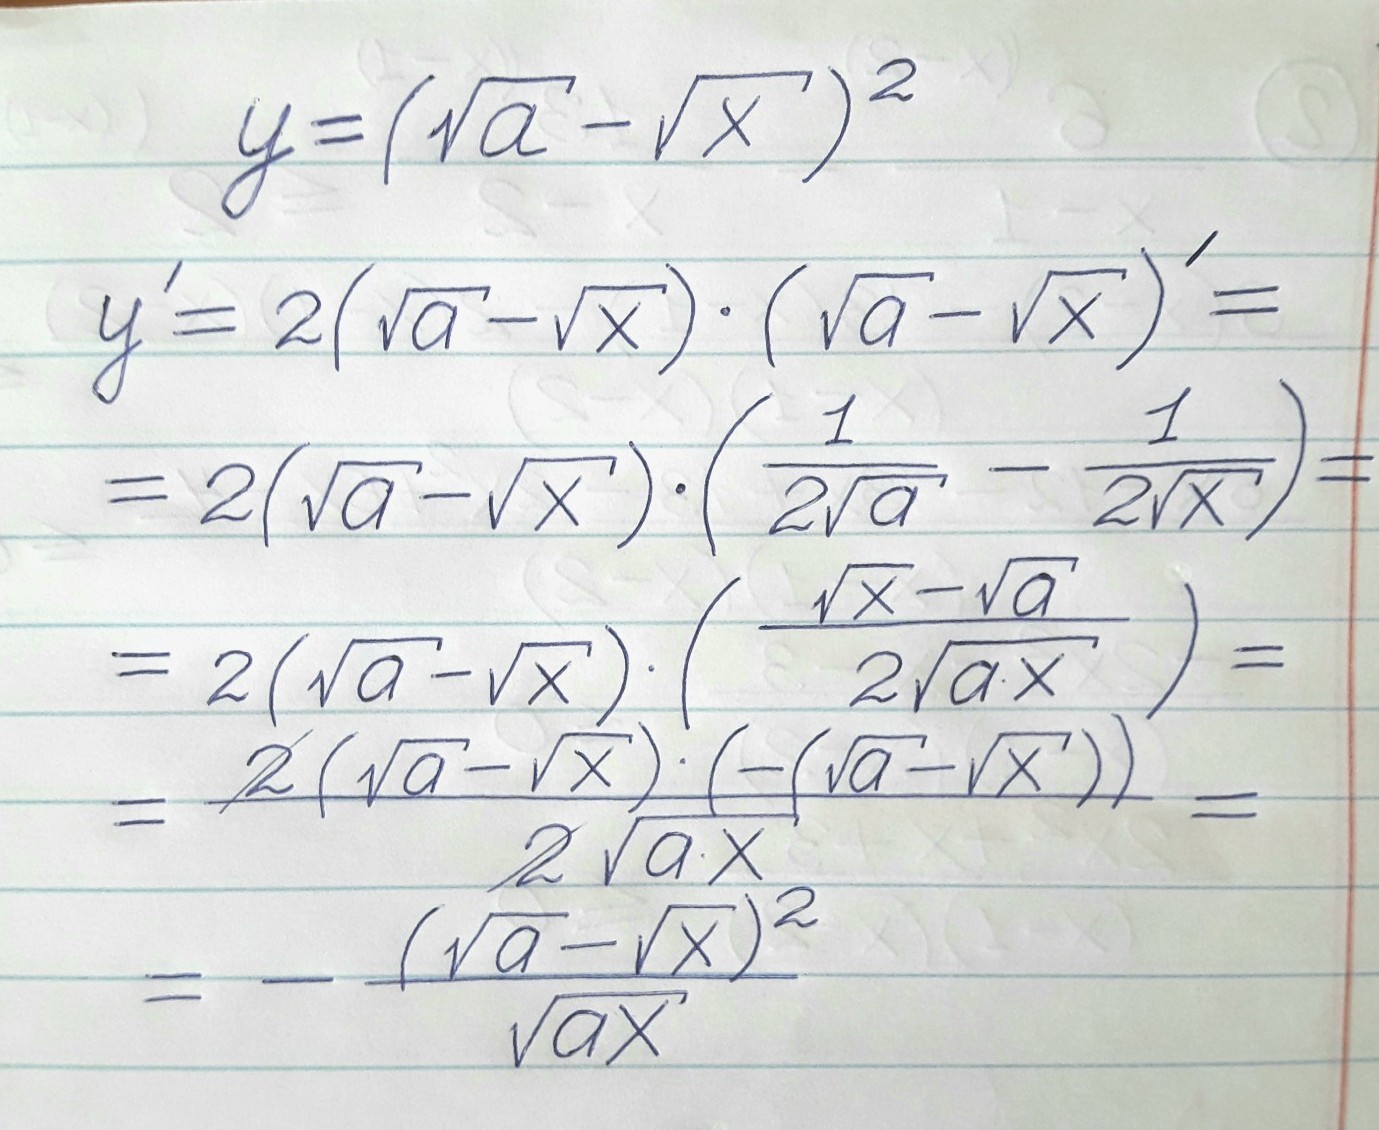 y = (√a - √x)²
y' = 2(√a - √x) · (√a - √x)' =
= 2(√a - √x) · (1/(2√a) - 1/(2√x)) =
= 2(√a - √x) · ((√x - √a)/(2√(a·x))) =
= (2(√a - √x) · (-(√a - √x)))/(2√(a·x)) =
= - (√a - √x)²/√(ax)